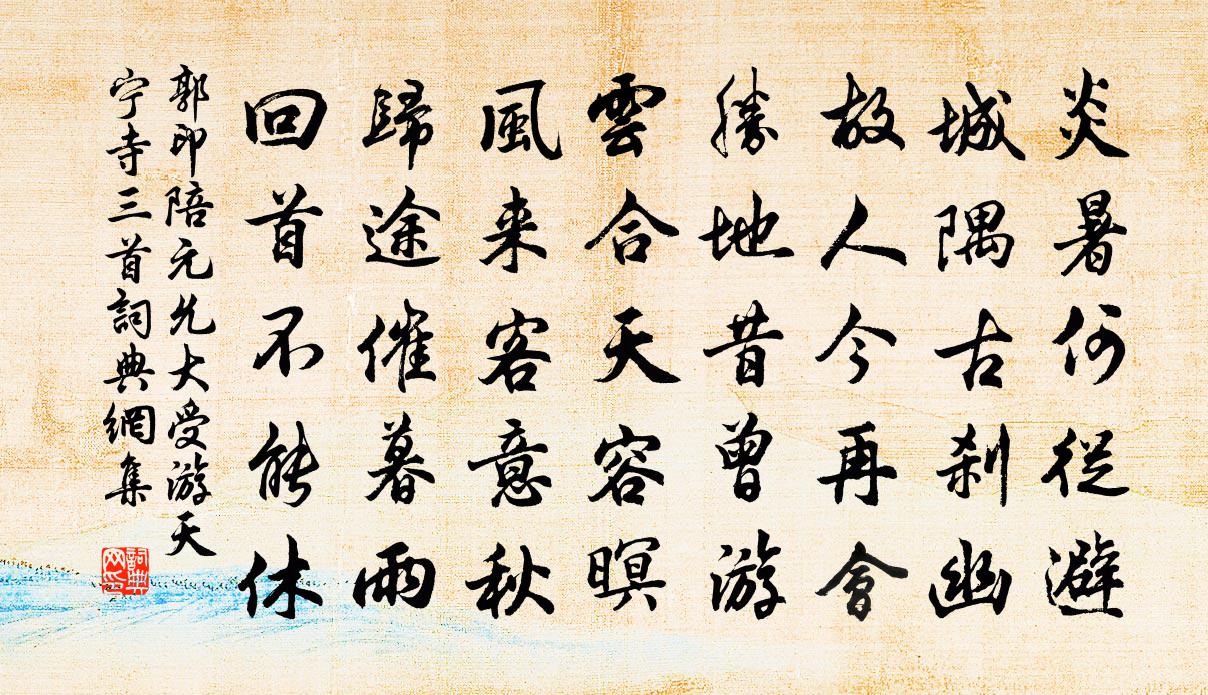 炎暑何從避
城隅古刹幽
故人今再會
勝地昔曾游
雲合天容暝
風来客意秋
歸途催暮雨
回首不能休
郭印陪元允大受游天
宁寺三首詞典網集
詞典
网印